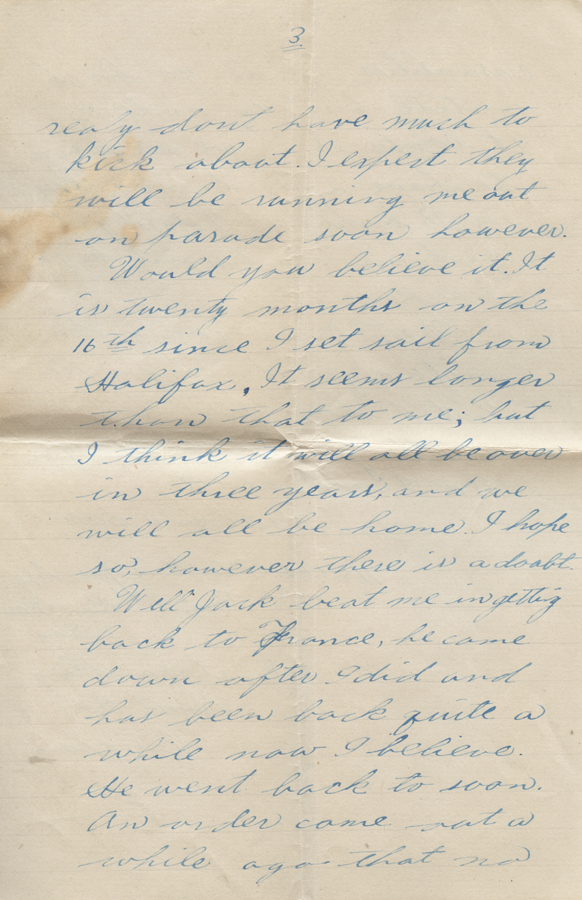 3
realy dont have much to
kick about. I expect they
will be running me out
on parade soon however.
Would you believe it. It
is twenty months on the
16th since I set sail from
Halifax. It seems longer
than that to me; but
I think it will all be over
in three years, and we
will all be home I hope
so, however there is a doubt.
Well Jack beat me in gettig
back to France, he came
down after I did and
has been back quite a
while now I believe.
He went back to soon.
An order came out a
while ago that no